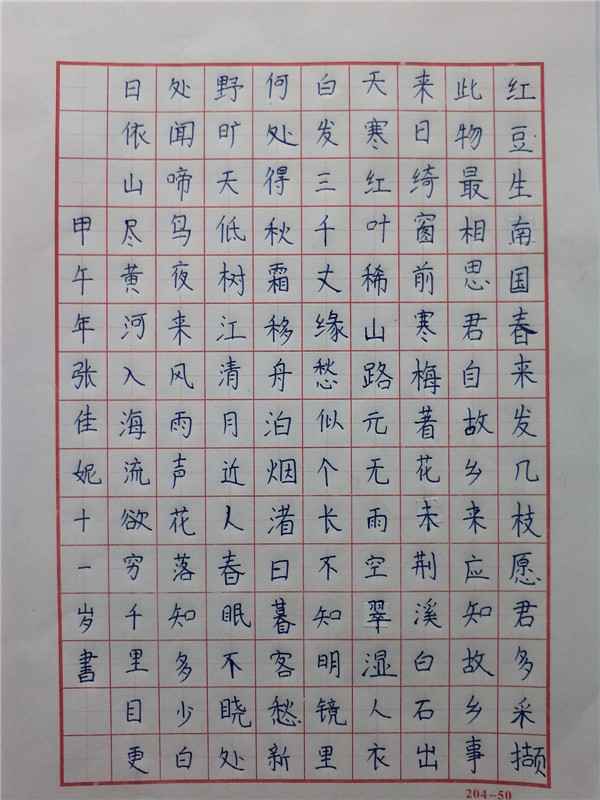 红豆生南国春来发几枝愿君多采撷
此物最相思君自故乡来应知故乡事
来日绮窗前寒梅著花未荆溪白石出
天寒红叶稀山路元无雨空翠湿人衣
白发三千丈缘愁似个长不知明镜里
何处得秋霜移舟泊烟渚日暮客愁新
野旷天低树江清月近人春眠不晓处
处闻啼鸟夜来风雨声花落知多少白
日依山尽黄河入海流欲穷千里目更
甲午年张佳妮十一岁書
204-50